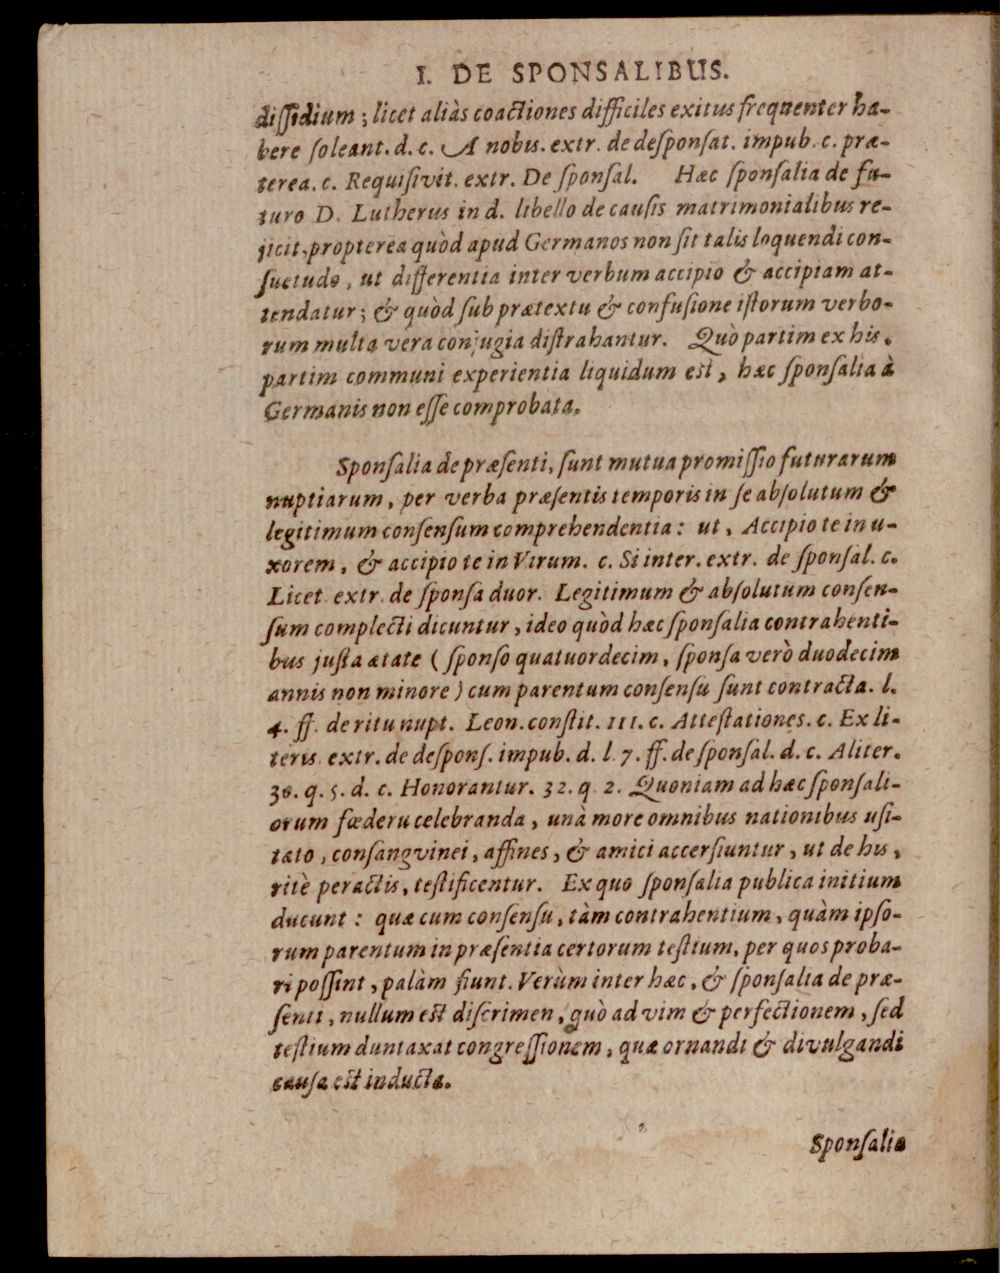 I. DE SPONSALIBUS.
diſſidium; licet aliàs coactiones difficiles exitus frequenter ha-
bere ſoleant. d. c. A nobis. extr. de deſponſat. impub. c. præ-
terea. c. Requiſivit. extr. De ſponſal. Hæc ſponſalia de fu-
turo D. Lutherus in d. libello de cauſis matrimonialibus re-
jicit, propterea quòd apud Germanos non ſit talis loquendi con-
ſuetudo, ut differentia inter verbum accipio & accipiam at-
tendatur; & quòd ſub prætextu & confuſione iſtorum verbo-
rum multa vera conjugia diſtrahantur. Quò partim ex his,
partim communi experientia liquidum est, hæc ſponſalia à
Germanis non eſſe comprobata.
Sponſalia de præſenti, ſunt mutua promiſſio futurarum
nuptiarum, per verba præſentis temporis in ſe abſolutum &
legitimum conſenſum comprehendentia: ut, Accipio te in u-
xorem, & accipio te in Virum. c. Si inter. extr. de ſponſal. c.
Licet extr. de ſponſa duor. Legitimum & abſolutum conſen-
ſum complecti dicuntur, ideo quòd hæc ſponſalia contrahenti-
bus juſta ætate (ſponſo quatuordecim, ſponſa verò duodecim
annis non minore) cum parentum conſenſu ſunt contracta. l.
4. ff. de ritu nupt. Leon. conſtit. 111. c. Atteſtationes. c. Ex li-
teris extr. de deſponſ. impub. d. l. 7. ff. de ſponſal. d. c. Aliter.
30. q. 5. d. c. Honorantur. 32. q. 2. Quoniam ad hæc ſponſali-
orum fœdera celebranda, unà more omnibus nationibus uſi-
tato, conſangvinei, affines, & amici accerſiuntur, ut de his,
ritè peractis, teſtificentur. Ex quo ſponſalia publica initium
ducunt: quæ cum conſenſu, tàm contrahentium, quàm ipſo-
rum parentum in præſentia certorum teſtium, per quos proba-
ri poſſint, palàm fiunt. Verùm inter hæc, & ſponſalia de præ-
ſenti, nullum est diſcrimen, quò ad vim & perfectionem, ſed
teſtium duntaxat congreſſionem, quæ ornandi & divulgandi
cauſa est inducta.
Sponſalia